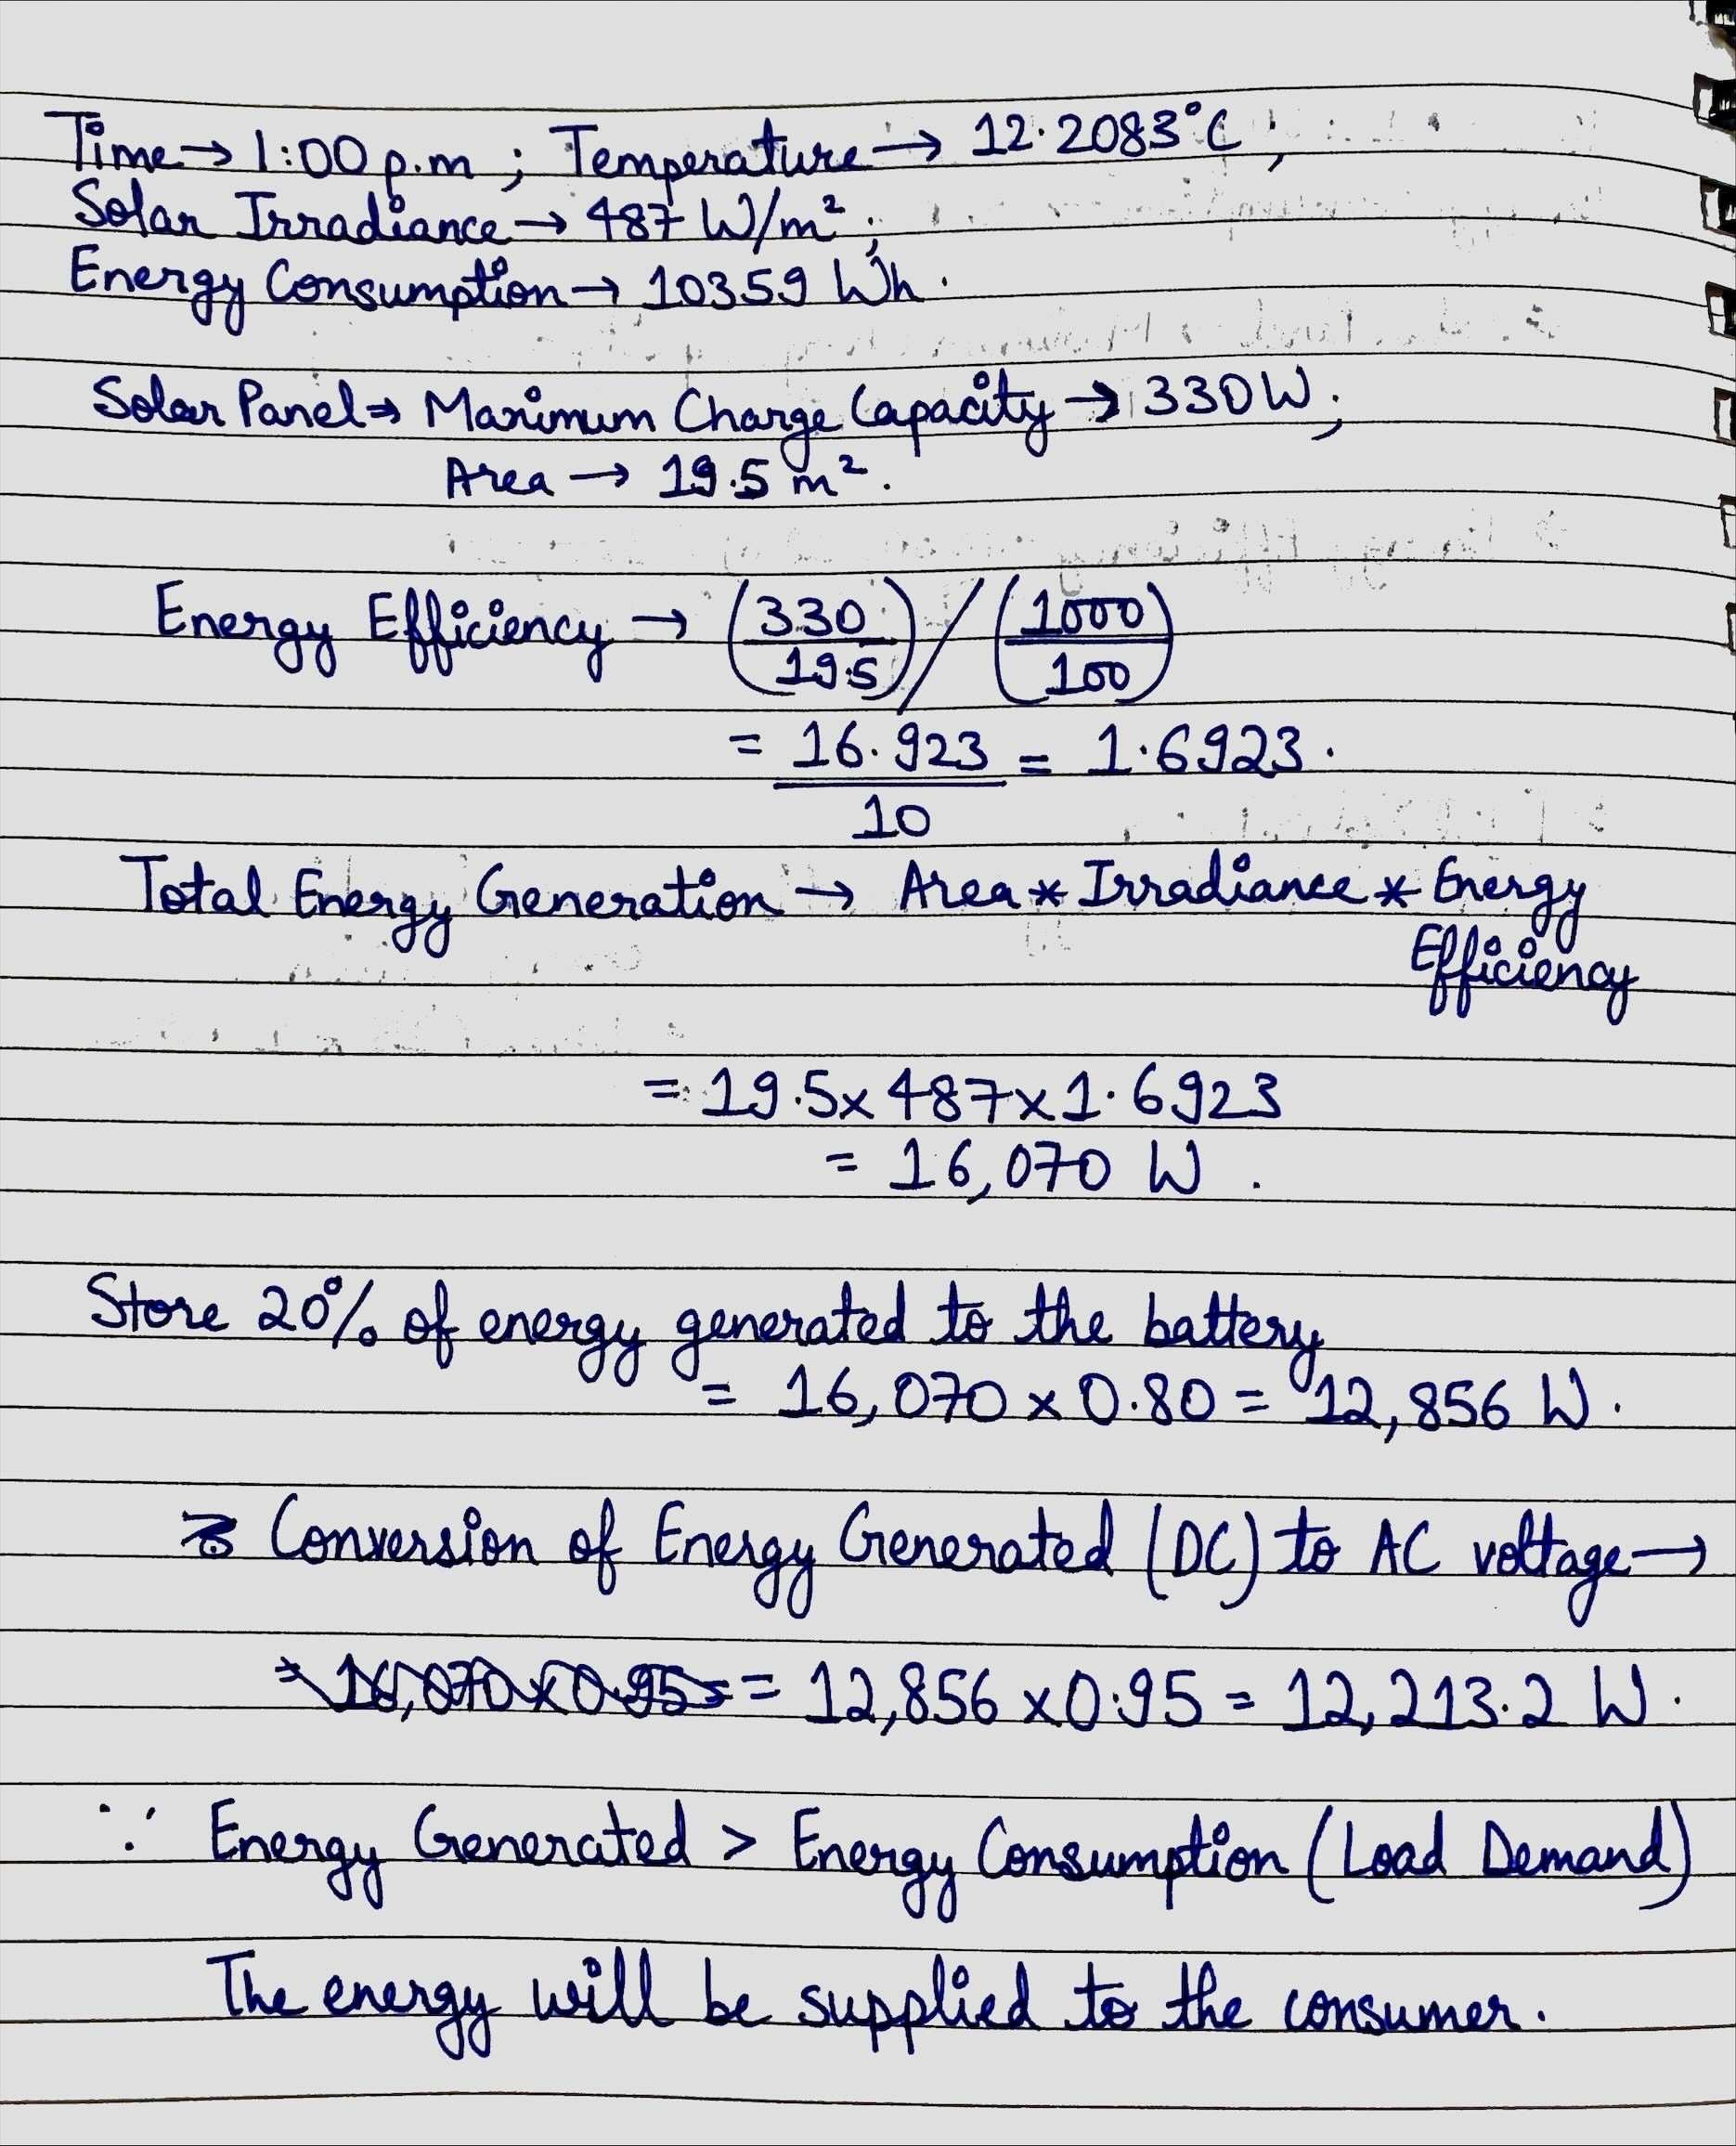 Time → 1:00 p.m ; Temperature → 12.2083°C ;
Solar Irradiance → 487 W/m² ;
Energy Consumption → 10359 Wh.
Solar Panel ⇒ Maximum Charge Capacity → 330W ;
Area → 19.5 m².
Energy Efficiency → (330/19.5) / (1000/100)
= 16.923/10 = 1.6923.
Total Energy Generation → Area * Irradiance * Energy
Efficiency
= 19.5 x 487 x 1.6923
= 16,070 W .
Store 20% of energy generated to the battery
= 16,070 x 0.80 = 12,856 W.
Conversion of Energy Generated (DC) to AC voltage →
= 16,070 x 0.95 = = 12,856 x 0.95 = 12,213.2 W.
∵ Energy Generated > Energy Consumption (Load Demand)
The energy will be supplied to the consumer.